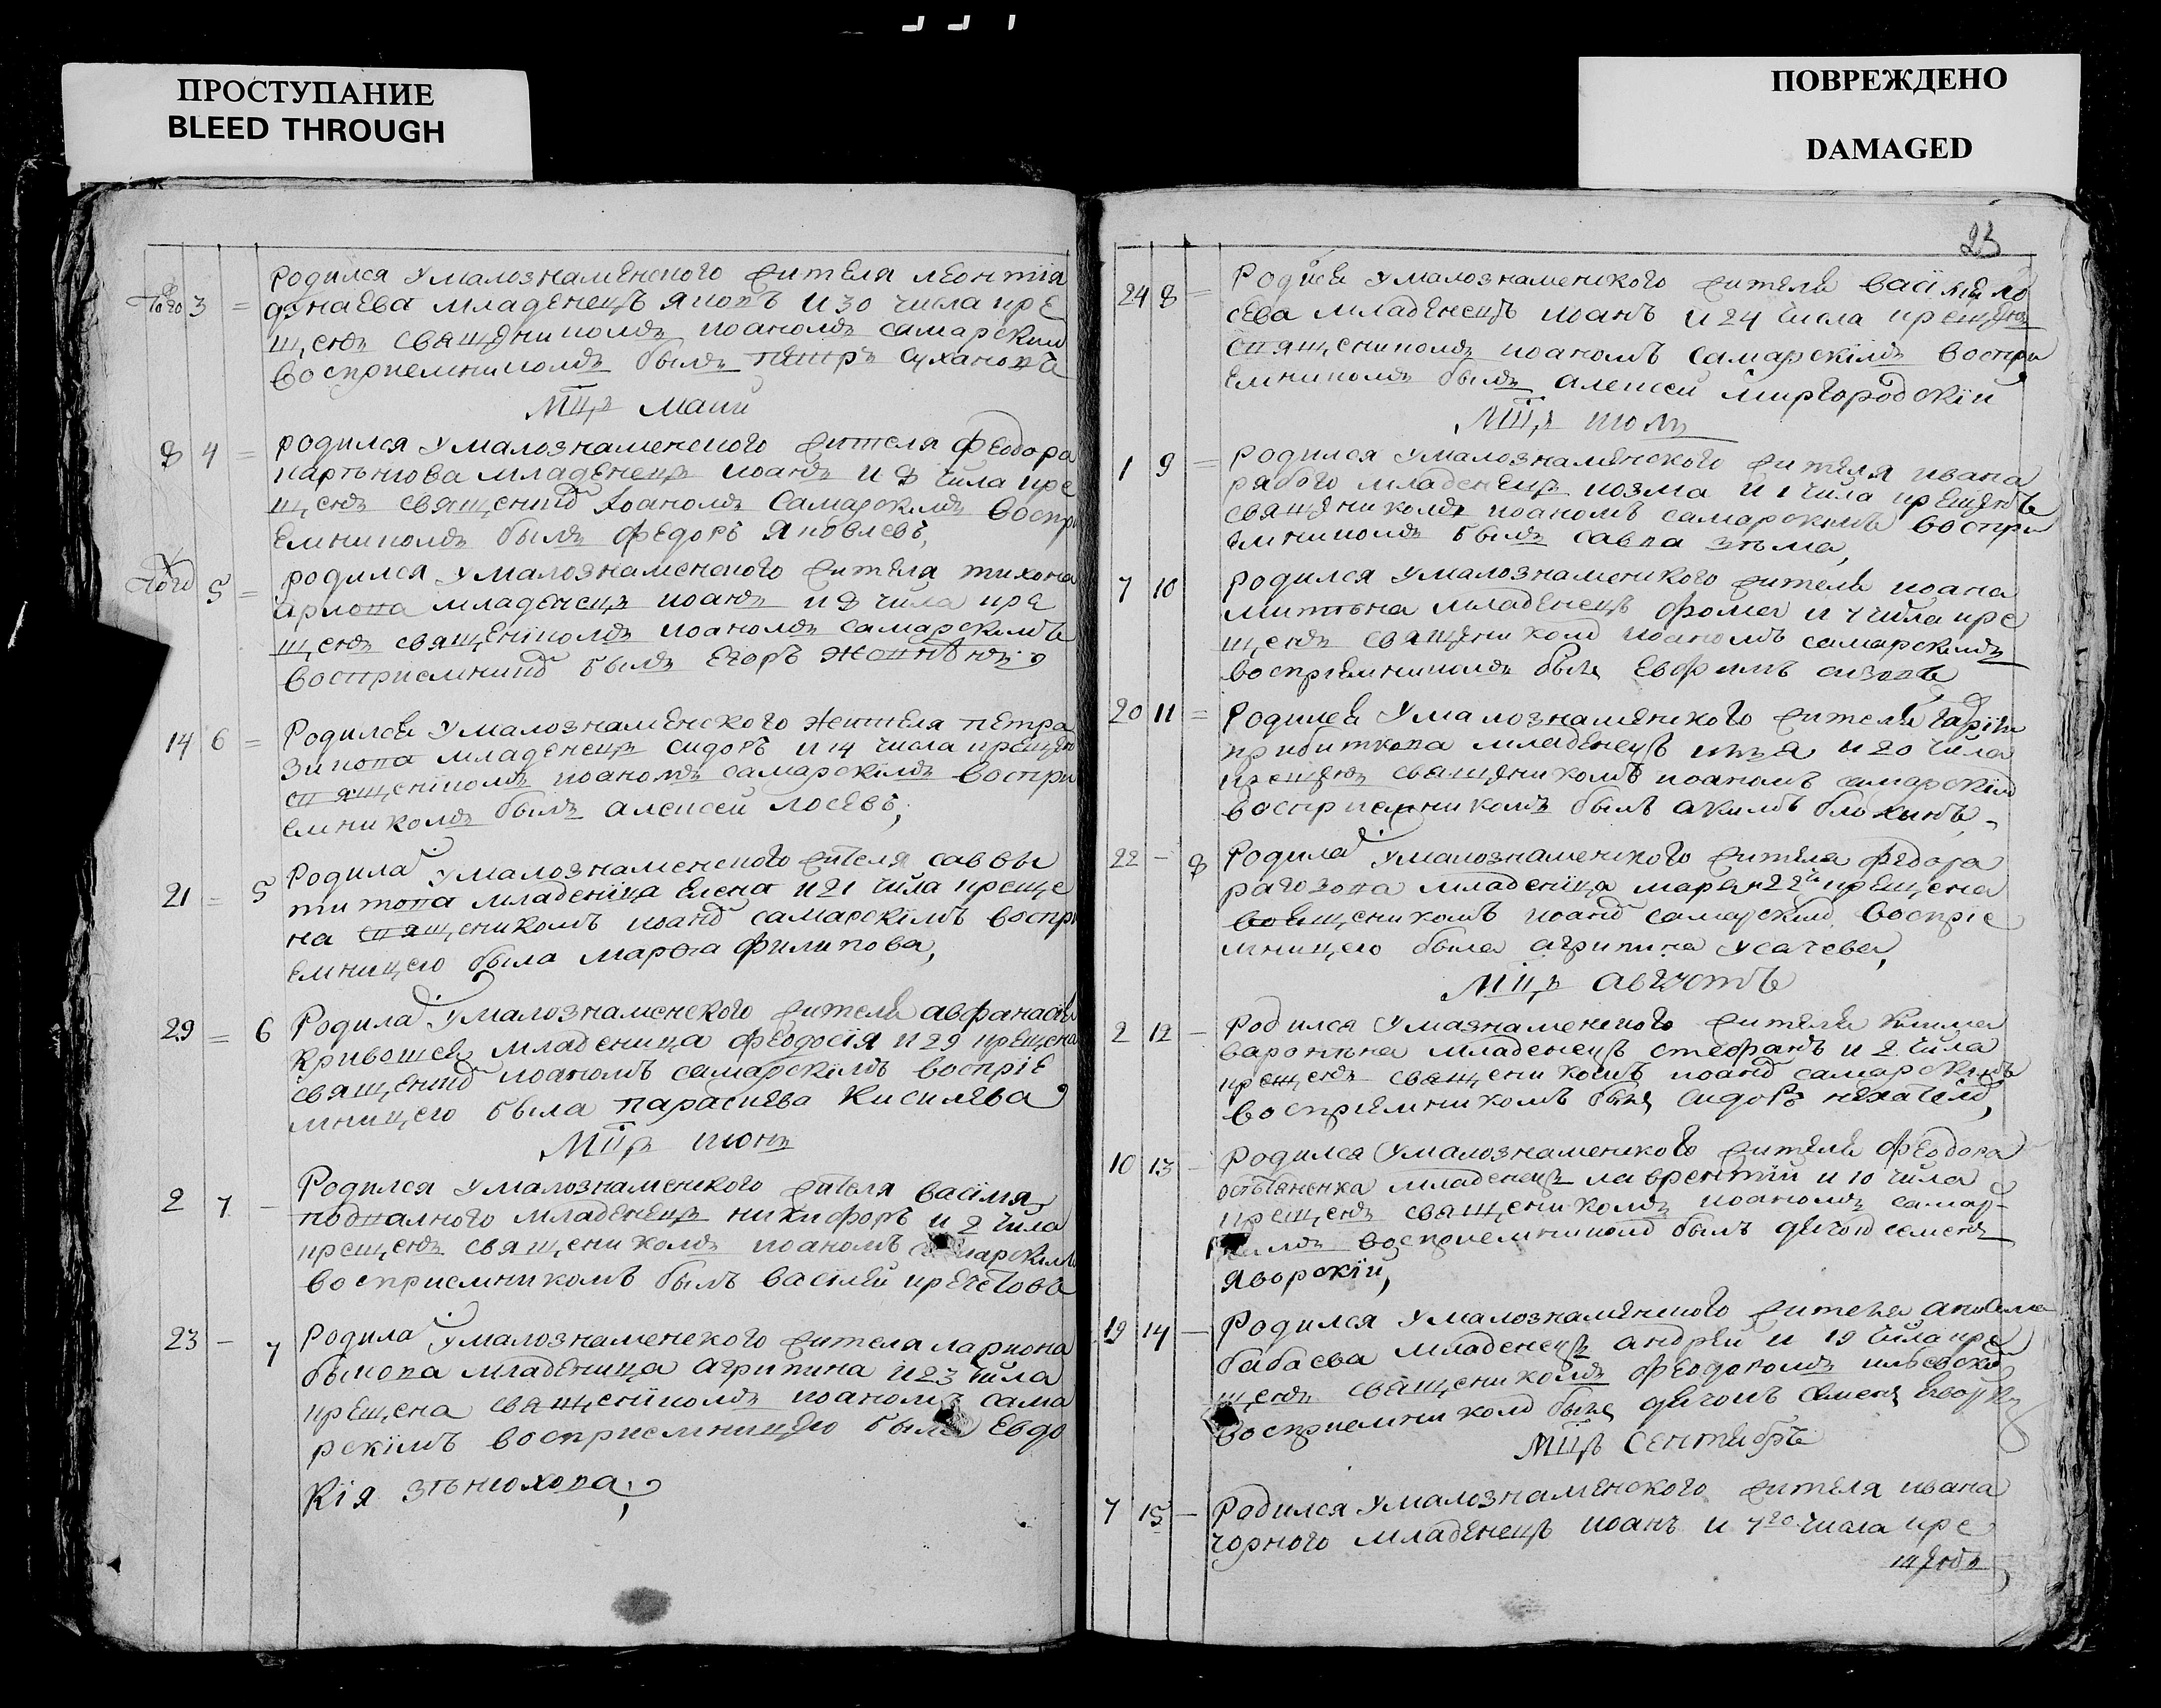 ПРОСТУПАНИЕ
BLEED THROUGH
ПОВРЕЖДЕНО
DAMAGED
того 3 = родился у малознаменского жителя леонтія
дунаева младенецъ яковъ и 30 числа кре
щенъ священикомъ иоаномъ самарским
восприемникомъ былъ петръ сухановъ
Мцъ маий
8 4 = родился у малознаменского жителя феодора
мартынова младенецъ иоанъ и 8 чила кре
щенъ священиком Іоаномъ Самарскимъ воспри
емникомъ былъ федоръ яковлевъ,
того 5 = родился у малознаменского жителя тихона
младенецъ иоанъ и 8 чила кре
щенъ священиком иоаномъ самарскимъ
восприемник былъ егоръ
14 6 = Родился у малознаменского жителя петра
зикова младенецъ сидоръ и 14 числа крещен
священікомъ иоаномъ самарскімъ воспри
емникомъ былъ алексей лосевъ,
21 = 5 Родилас у малознаменского жителя саввы
титова младеніца елена и 21 чила креще
на священикомъ иоаном самарскімъ воспри
емницею была марфа филипова,
29 = 6 Родилас у малознаменского жителя авфанасія
кривошея младеница феодосія и 29 крещена
священиком иоаномъ самарскимъ воспріе
мницею была параскева Кисилева
Мцъ июнъ
2 7 – Родился у малознаменского жителя васілия
подпалного младенецъ никифоръ и 2 чила
крещенъ священикомъ иоаномъ самарским
восприемникомъ былъ васілей кречетовъ
23 – 7 Родилас у малознаменского жителя лариона
быкова младеница агрипина и 23 чила
крещена священікомъ иоаномъ сама
рскімъ восприемницею была евдо
кія
23
24 8 = Родился у малознаменского жителя васілия ло
сева младенецъ иоанъ и 24 числа крещенъ
священикомъ иоаномъ самарскімъ воспри
емникомъ былъ алексей миргородскій
Мцъ июль
1 9 = Родился у малознаменского жителя ивана
рябого младенецъ козма и 1 чила крещенъ
священикомъ иоаномъ самарскимъ воспри
емникомъ былъ савва зюма,
7 10 Родился у малознаменского жителя иоана
младенецъ фома и 7 чила кре
щенъ священиком иоаномъ самарскимъ
восприемникомъ былъ евфимъ сизовъ
20 11 = Родился у малознаменского жителя
прибиткова младенецъ илья и 20 чила
крещенъ священикомъ иоаномъ самарскім
восприемникомъ былъ акимъ блохинъ,
22 – 8 Родилас у малознаменского жителя федора
рагозова младеніца марья 22 крещена
священикомъ иоаном самарским воспріе
мницею была агрипина усачева,
Мцъ августъ
2 12 – Родился у мазнаменского жителя клима
младенецъ стефанъ и 2 чила
крещенъ священикомъ иоаном самарскимъ
восприемникомъ былъ сидоръ
10 13 – Родился у малознаменского жителя феодора
младенецъ лаврентій и 10 чила
крещенъ священикомъ иоаномъ самар-
скимъ восприемником былъ дячокъ семенъ
яворскій,
19 14 – Родился у малознаменского жителя
бабаева младенецъ андрей и 19 чила кре
щенъ священикомъ феодоромъ
восприемником былъ дячокъ Семенъ
Мцъ Сентябръ
7 15 – Родился у малознаменского жителя ивана
чорного младенецъ иоанъ и 7го числа кре
щенъ